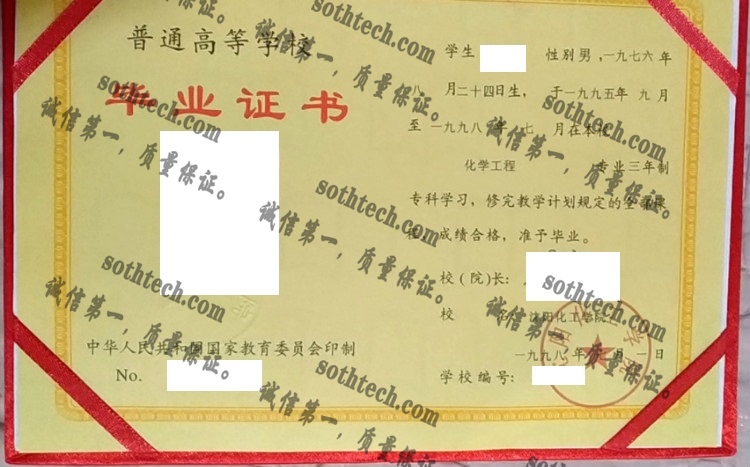 普通高等学校
毕业证书
中华人民共和国国家教育委员会印制
No.
学生 性别男,一九七六年
八 月二十四日生,于一九九五年 九月
至一九九八年 七 月在本校
化学工程 专业三年制
专科学习,修完教学计划规定的全部课
程,成绩合格,准予毕业。
校(院)长:
校 名:沈阳化工学院
一九九八年 月一日
学校编号:
sothtech.com
诚信第一,质量保证。
sothtech.com
诚信第一,质量保证。
sothtech.com
诚信第一,质量保证。
sothtech.com
诚信第一,质量保证。
sothtech.com
诚信第一,质量保证。
sothtech.com
诚信第一,质量保证。